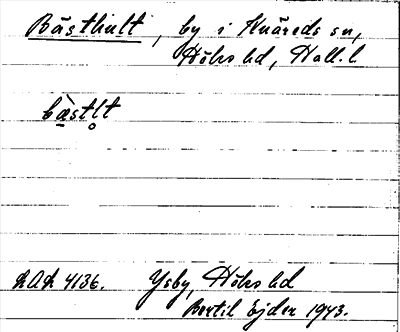 Båsthult, by i Knäreds sn,
Höks hd, Hall. l
bæ̀stl̥t
LAL 4136. Ysby, Höks hd
Bertil Ejder 1943.